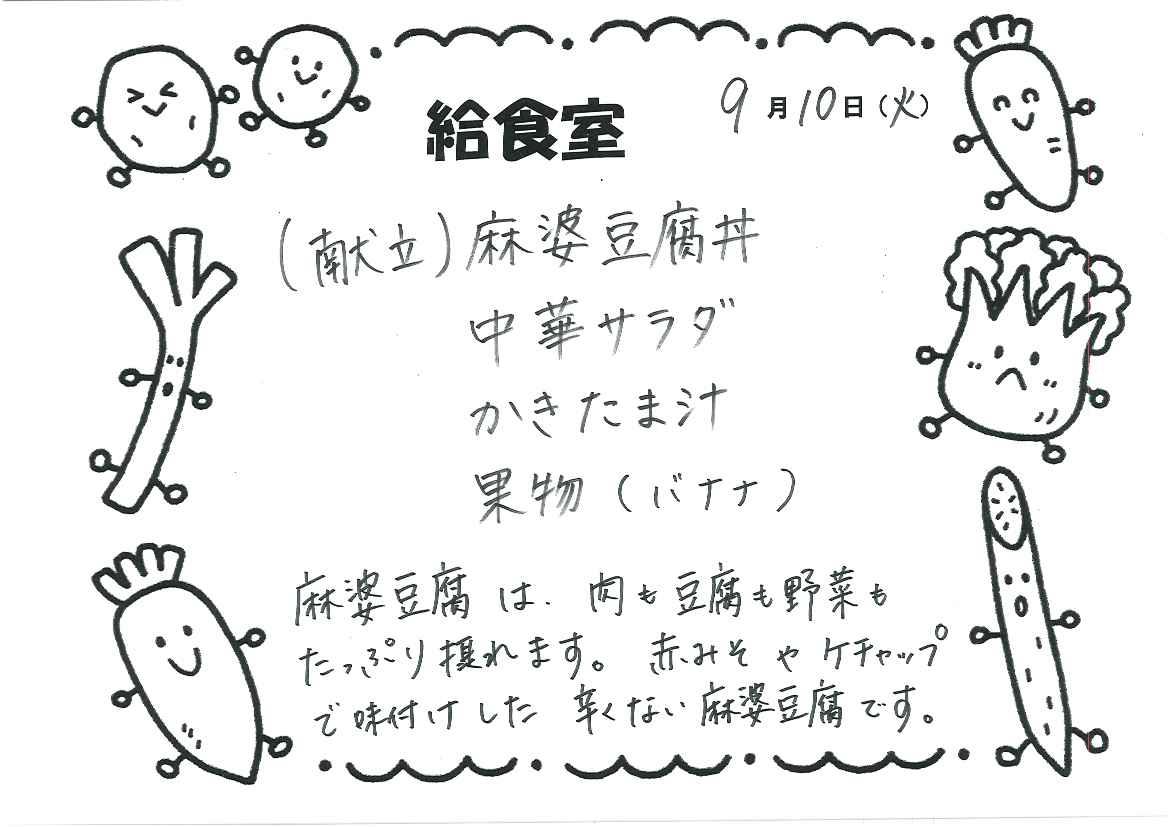 給食室
9月10日(火)
(献立)麻婆豆腐丼
中華サラダ
かきたま汁
果物(バナナ)
麻婆豆腐は、肉も豆腐も野菜も
たっぷり摂れます。赤みそやケチャップ
で味付けした辛くない麻婆豆腐です。